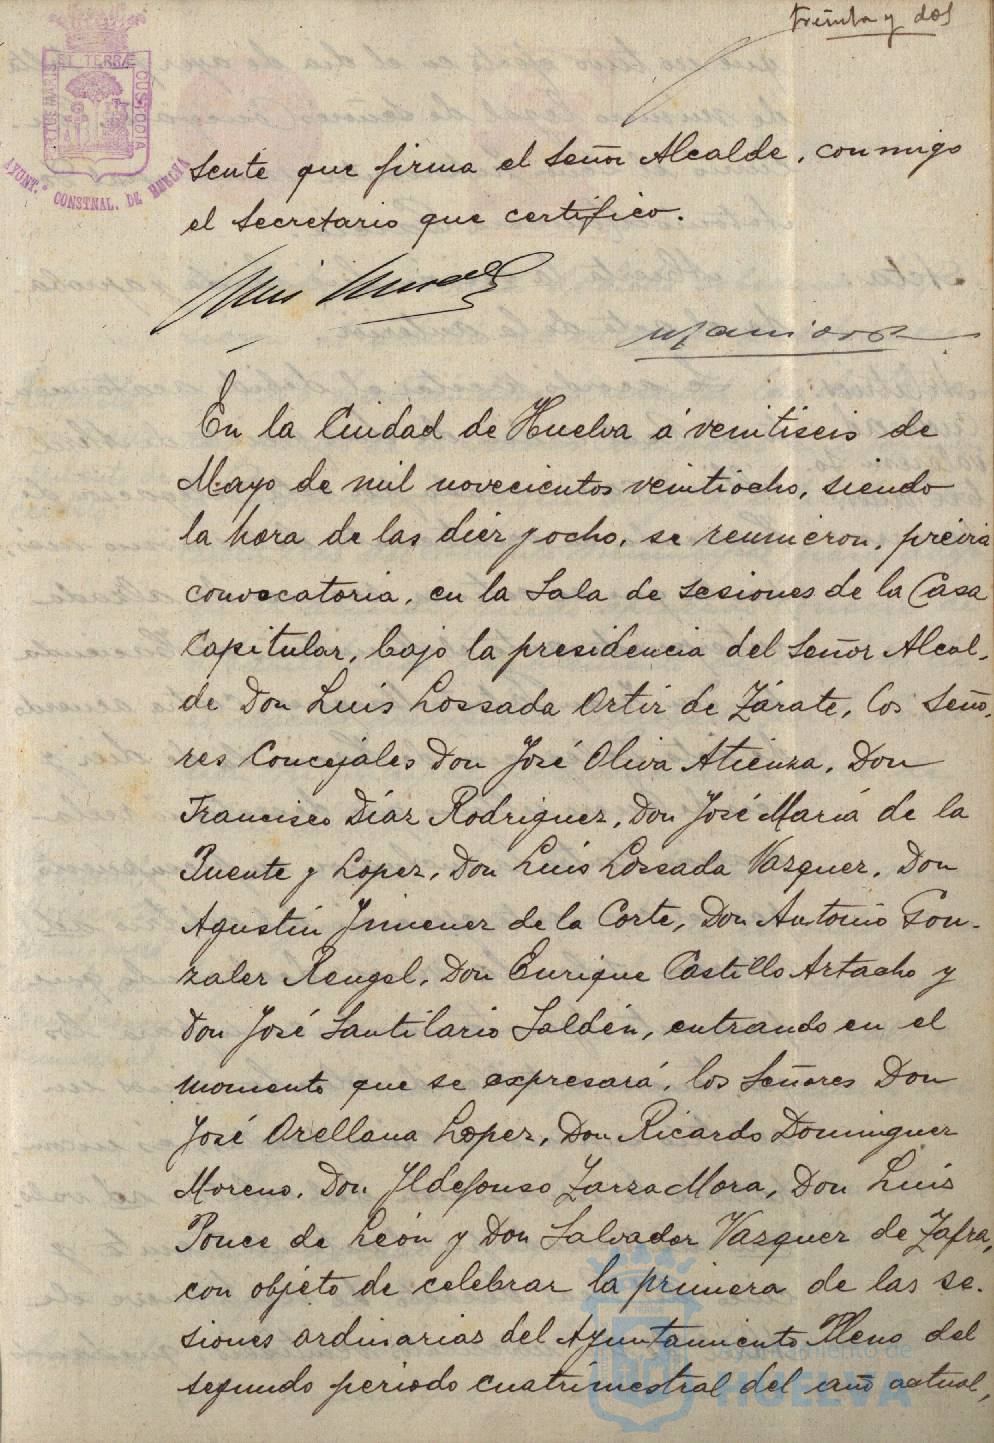 treinta y dos
PORTUS MARIS ET TERRÆ CUSTODIA
AYUNT.º CONSTNAL. DE HUELVA
sente que firma el Señor Alcalde, conmigo
el Secretario que certifico.
En la Ciudad de Huelva á veintiseis de
Mayo de mil novecientos veintiocho, siendo
la hora de las diez y ocho, se reunieron, prévia
convocatoria, en la Sala de sesiones de la Casa
Capitular, bajo la presidencia del Señor Alcal-
de Don Luis Lossada Ortiz de Zárate, los Seño-
res Concejales Don José Oliva Atienza, Don
Francisco Díaz Rodriguez, Don José María de la
Puente y Lopez, Don Luis Lossada Vazquez, Don
Agustin Jimenez de la Corte, Don Antonio Gon-
zalez Rengel, Don Enrique Castillo Artacho y
Don José Santilario Saldén, entrando en el
momento que se expresará, los Señores Don
José Orellana Lopez, Don Ricardo Dominguez
Moreno, Don Ildefonso Zarza Mora, Don Luis
Ponce de León y Don Salvador Vazquez de Zafra,
con objeto de celebrar la primera de las se-
siones ordinarias del Ayuntamiento Pleno del
segundo periodo cuatrimestral del año actual,
Ayuntamiento de
HUELVA